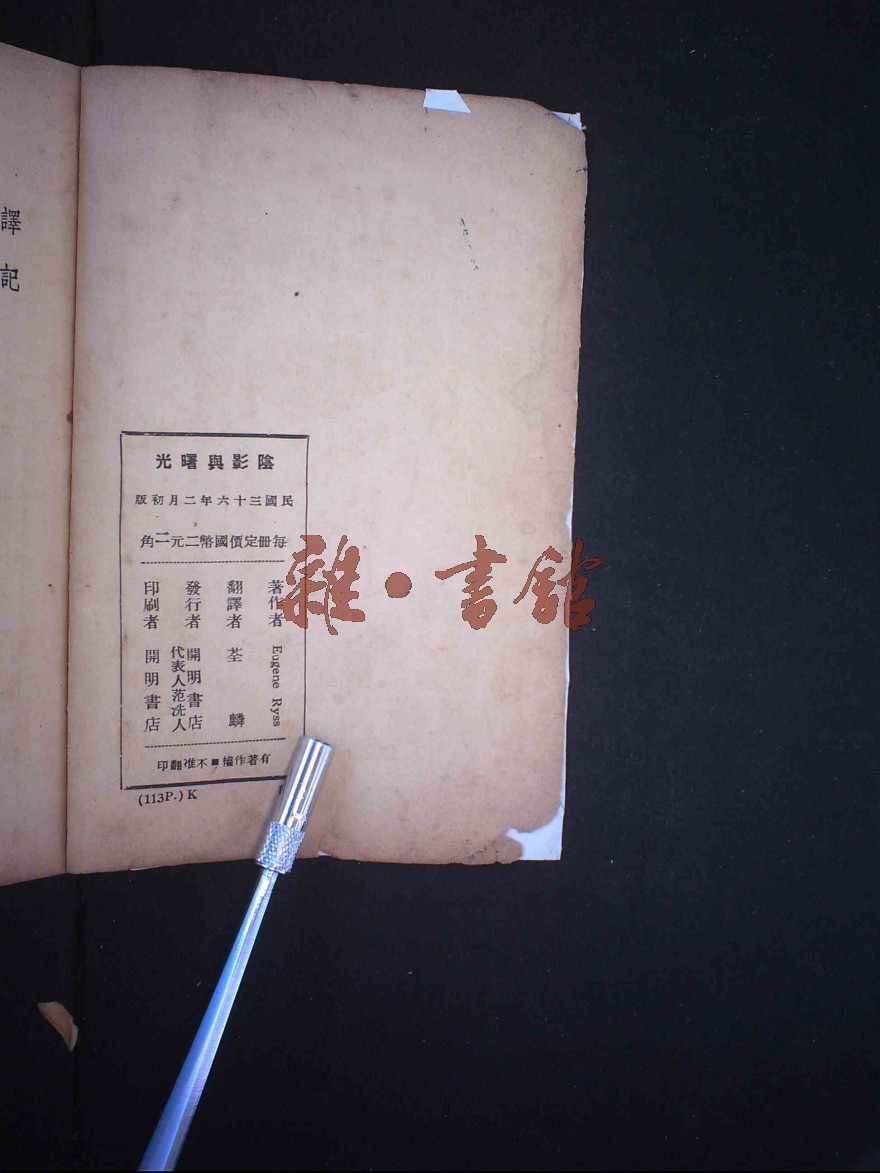 陰影與曙光
民國三十六年二月初版
每冊定價國幣二元二角
著作者 Eugene Ryss
翻譯者 荃麟
發行者 開明書店
代表人范洗人
印刷者 開明書店
有著作權■不准翻印
(113P.) K
譯記
雜·書館